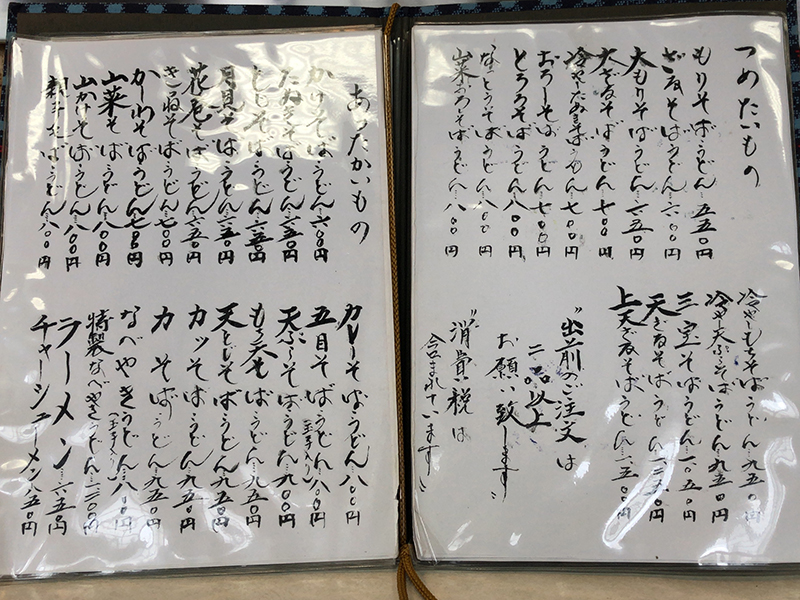 つめたいもの
もりそば・うどん…五五〇円
ざるそば・うどん…六〇〇円
大もりそば・うどん…六五〇円
大ざるそば・うどん…七〇〇円
冷やしたぬきそば・うどん…七〇〇円
おろしそば・うどん…七〇〇円
とろろそば・うどん…八〇〇円
なっとうそば・うどん…八〇〇円
山菜おろしそば・うどん…八〇〇円
冷やしもちそば・うどん…九五〇円
冷やし天ぷらそば・うどん…九五〇円
三宝そば・うどん…一〇五〇円
天ざるそば・うどん
上天ざるそば・うどん…一五〇〇円
"出前のご注文は
二品以上
お願い致します"
"消費税は
含まれています"
あたたかいもの
かけそば・うどん…六〇〇円
たぬきそば・うどん…六五〇円
とじそば・うどん…六五〇円
月見そば・うどん…六五〇円
花巻そば・うどん…六五〇円
きつねそば・うどん…七〇〇円
かしわそば・うどん…七〇〇円
山菜そば・うどん…八〇〇円
山かけそば・うどん…八〇〇円
親子そば・うどん…八〇〇円
カレーそば・うどん…八〇〇円
五目そば・うどん(玉子入り)…八〇〇円
天ぷらそば・うどん…九〇〇円
もち天そば・うどん…九五〇円
天とじそば・うどん…九五〇円
カツそば・うどん…九五〇円
力そば・うどん…九五〇円
なべやきうどん(玉子入り)…八〇〇円
特製なべやきうどん…一二〇〇円
ラーメン…六五〇円
チャーシューメン…八五〇円